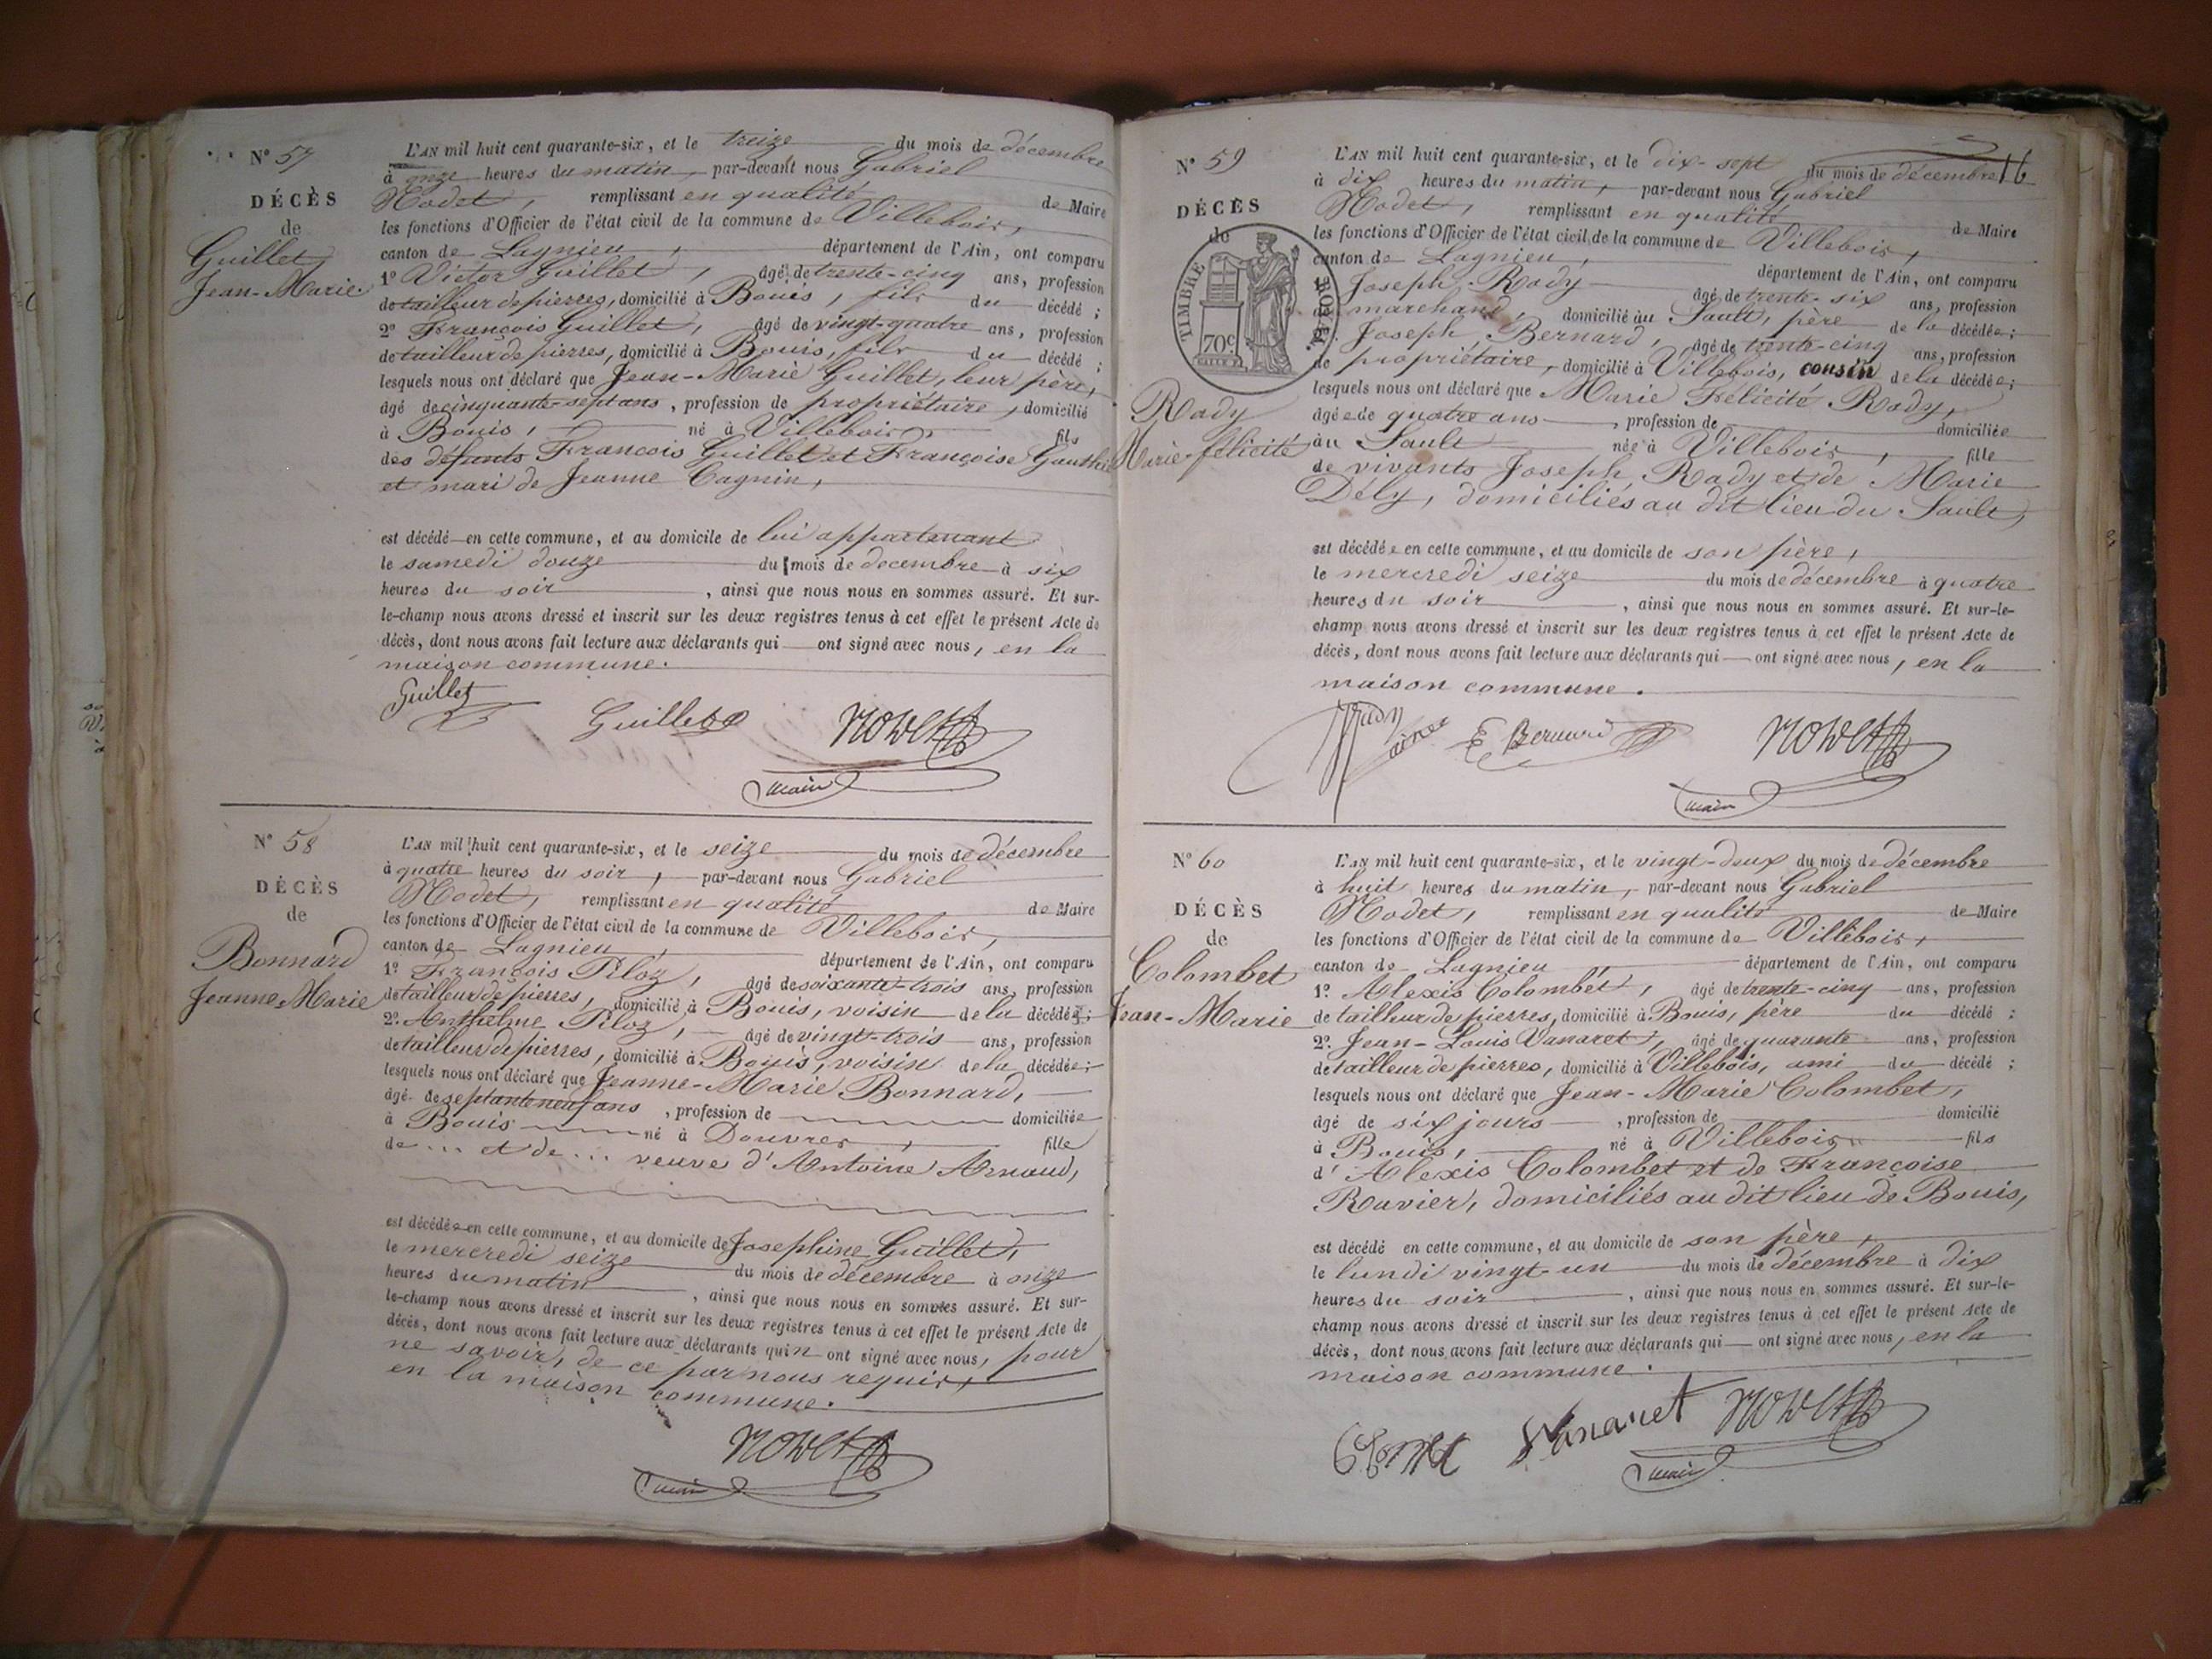 N° 57
DÉCÈS
de
Guillet
Jean-Marie.
L'AN mil huit cent quarante-six, et le treize du mois de décembre
à onze heures du matin, par-devant nous Gabriel
Nodet, remplissant en qualité de Maire
les fonctions d'Officier de l'état civil de la commune de Villebois,
canton de Lagnieu, département de l'Ain, ont comparu
1° Victor Guillet, âgé de trente-cinq ans, profession
de tailleur de pierres, domicilié à Bouis, fils du décédé;
2° François Guillet, âgé de vingt-quatre ans, profession
de tailleur de pierres, domicilié à Bouis, fils du décédé;
lesquels nous ont déclaré que Jean-Marie Guillet, leur père,
âgé de cinquante-sept ans, profession de propriétaire, domicilié
à Bouis, né à Villebois, fils
des défunts François Guillet et Françoise
et mari de Jeanne Cagnin,
est décédé en cette commune, et au domicile de lui appartenant
le samedi douze du mois de decembre à six
heures du soir, ainsi que nous nous en sommes assuré. Et sur-
le-champ nous avons dressé et inscrit sur les deux registres tenus à cet effet le présent Acte de
décès, dont nous avons fait lecture aux déclarants qui ont signé avec nous, en la
maison commune.
Guillet Guillet Nodet
maire
N° 58
DÉCÈS
de
Bonnard
Jeanne-Marie
L'AN mil huit cent quarante-six, et le seize du mois de décembre
à quatre heures du soir, par-devant nous Gabriel
Nodet, remplissant en qualité de Maire
les fonctions d'Officier de l'état civil de la commune de Villebois,
canton de Lagnieu, département de l'Ain, ont comparu
1° François Piloz, âgé de soixante-trois ans, profession
de tailleur de pierres, domicilié à Bouis, voisin de la décédée;
2° Anthelme Piloz, âgé de vingt-trois ans, profession
de tailleur de pierres, domicilié à Bouis, voisin de la décédée;
lesquels nous ont déclaré que Jeanne-Marie Bonnard,
âgé de septante neuf ans, profession de domiciliée
à Bouis né à Douvres, fille
de ... et de ... veuve d'Antoine Arnaud,
est décédée en cette commune, et au domicile de Josephine Guillet,
le mercredi seize du mois de décembre à onze
heures du matin, ainsi que nous nous en sommes assuré. Et sur-
le-champ nous avons dressé et inscrit sur les deux registres tenus à cet effet le présent Acte de
décès, dont nous avons fait lecture aux déclarants qui n'ont signé avec nous, pour
ne savoir, de ce par nous requis,
en la maison commune.
Nodet
maire
16
N° 59
DÉCÈS
de
TIMBRE ROYAL
70c
Rady
Marie-félicité
L'AN mil huit cent quarante-six, et le dix-sept du mois de décembre
à dix heures du matin, par-devant nous Gabriel
Nodet, remplissant en qualité de Maire
les fonctions d'Officier de l'état civil de la commune de Villebois,
canton de Lagnieu, département de l'Ain, ont comparu
Joseph Rady âgé de trente-six ans, profession
de marchand, domicilié au Sault, père de la décédée;
Joseph Bernard, âgé de trente-cinq ans, profession
de propriétaire, domicilié à Villebois, cousin de la décédée;
lesquels nous ont déclaré que Marie Félicité Rady,
âgée de quatre ans, profession de domiciliée
au Sault née à Villebois, fille
de vivants Joseph Rady et de Marie
Dély, domiciliés au dit lieu du Sault,
est décédée en cette commune, et au domicile de son père,
le mercredi seize du mois de décembre à quatre
heures du soir, ainsi que nous nous en sommes assuré. Et sur-le-
champ nous avons dressé et inscrit sur les deux registres tenus à cet effet le présent Acte de
décès, dont nous avons fait lecture aux déclarants qui ont signé avec nous, en la
maison commune.
Rady ainé Bernard Nodet
maire
N° 60
DÉCÈS
de
Colombet
Jean-Marie
L'AN mil huit cent quarante-six, et le vingt-deux du mois de décembre
à huit heures du matin, par-devant nous Gabriel
Nodet, remplissant en qualité de Maire
les fonctions d'Officier de l'état civil de la commune de Villebois,
canton de Lagnieu, département de l'Ain, ont comparu
1° Alexis Colombet, âgé de trente-cinq ans, profession
de tailleur de pierres, domicilié à Bouis, père du décédé;
2° Jean-Louis Vanaret, âgé de quarante ans, profession
de tailleur de pierres, domicilié à Villebois, ami du décédé;
lesquels nous ont déclaré que Jean-Marie Colombet,
âgé de six jours, profession de domicilié
à Bouis, né à Villebois fils
d'Alexis Colombet et de Françoise
Ravier, domiciliés au dit lieu de Bouis,
est décédé en cette commune, et au domicile de son père,
le lundi vingt-un du mois de décembre à dix
heures du soir, ainsi que nous nous en sommes assuré. Et sur-le-
champ nous avons dressé et inscrit sur les deux registres tenus à cet effet le présent Acte de
décès, dont nous avons fait lecture aux déclarants qui ont signé avec nous, en la
maison commune.
Vanaret Nodet
maire